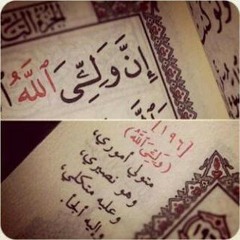 إِنَّ وَلِـِّۧيَ ٱللَّهُ
[١٩٦]
(وَلِيَّ اللَّهُ)
متولي أموري،
وهو نصيري،
وعليه متكلي،
وإليه ألجأ.